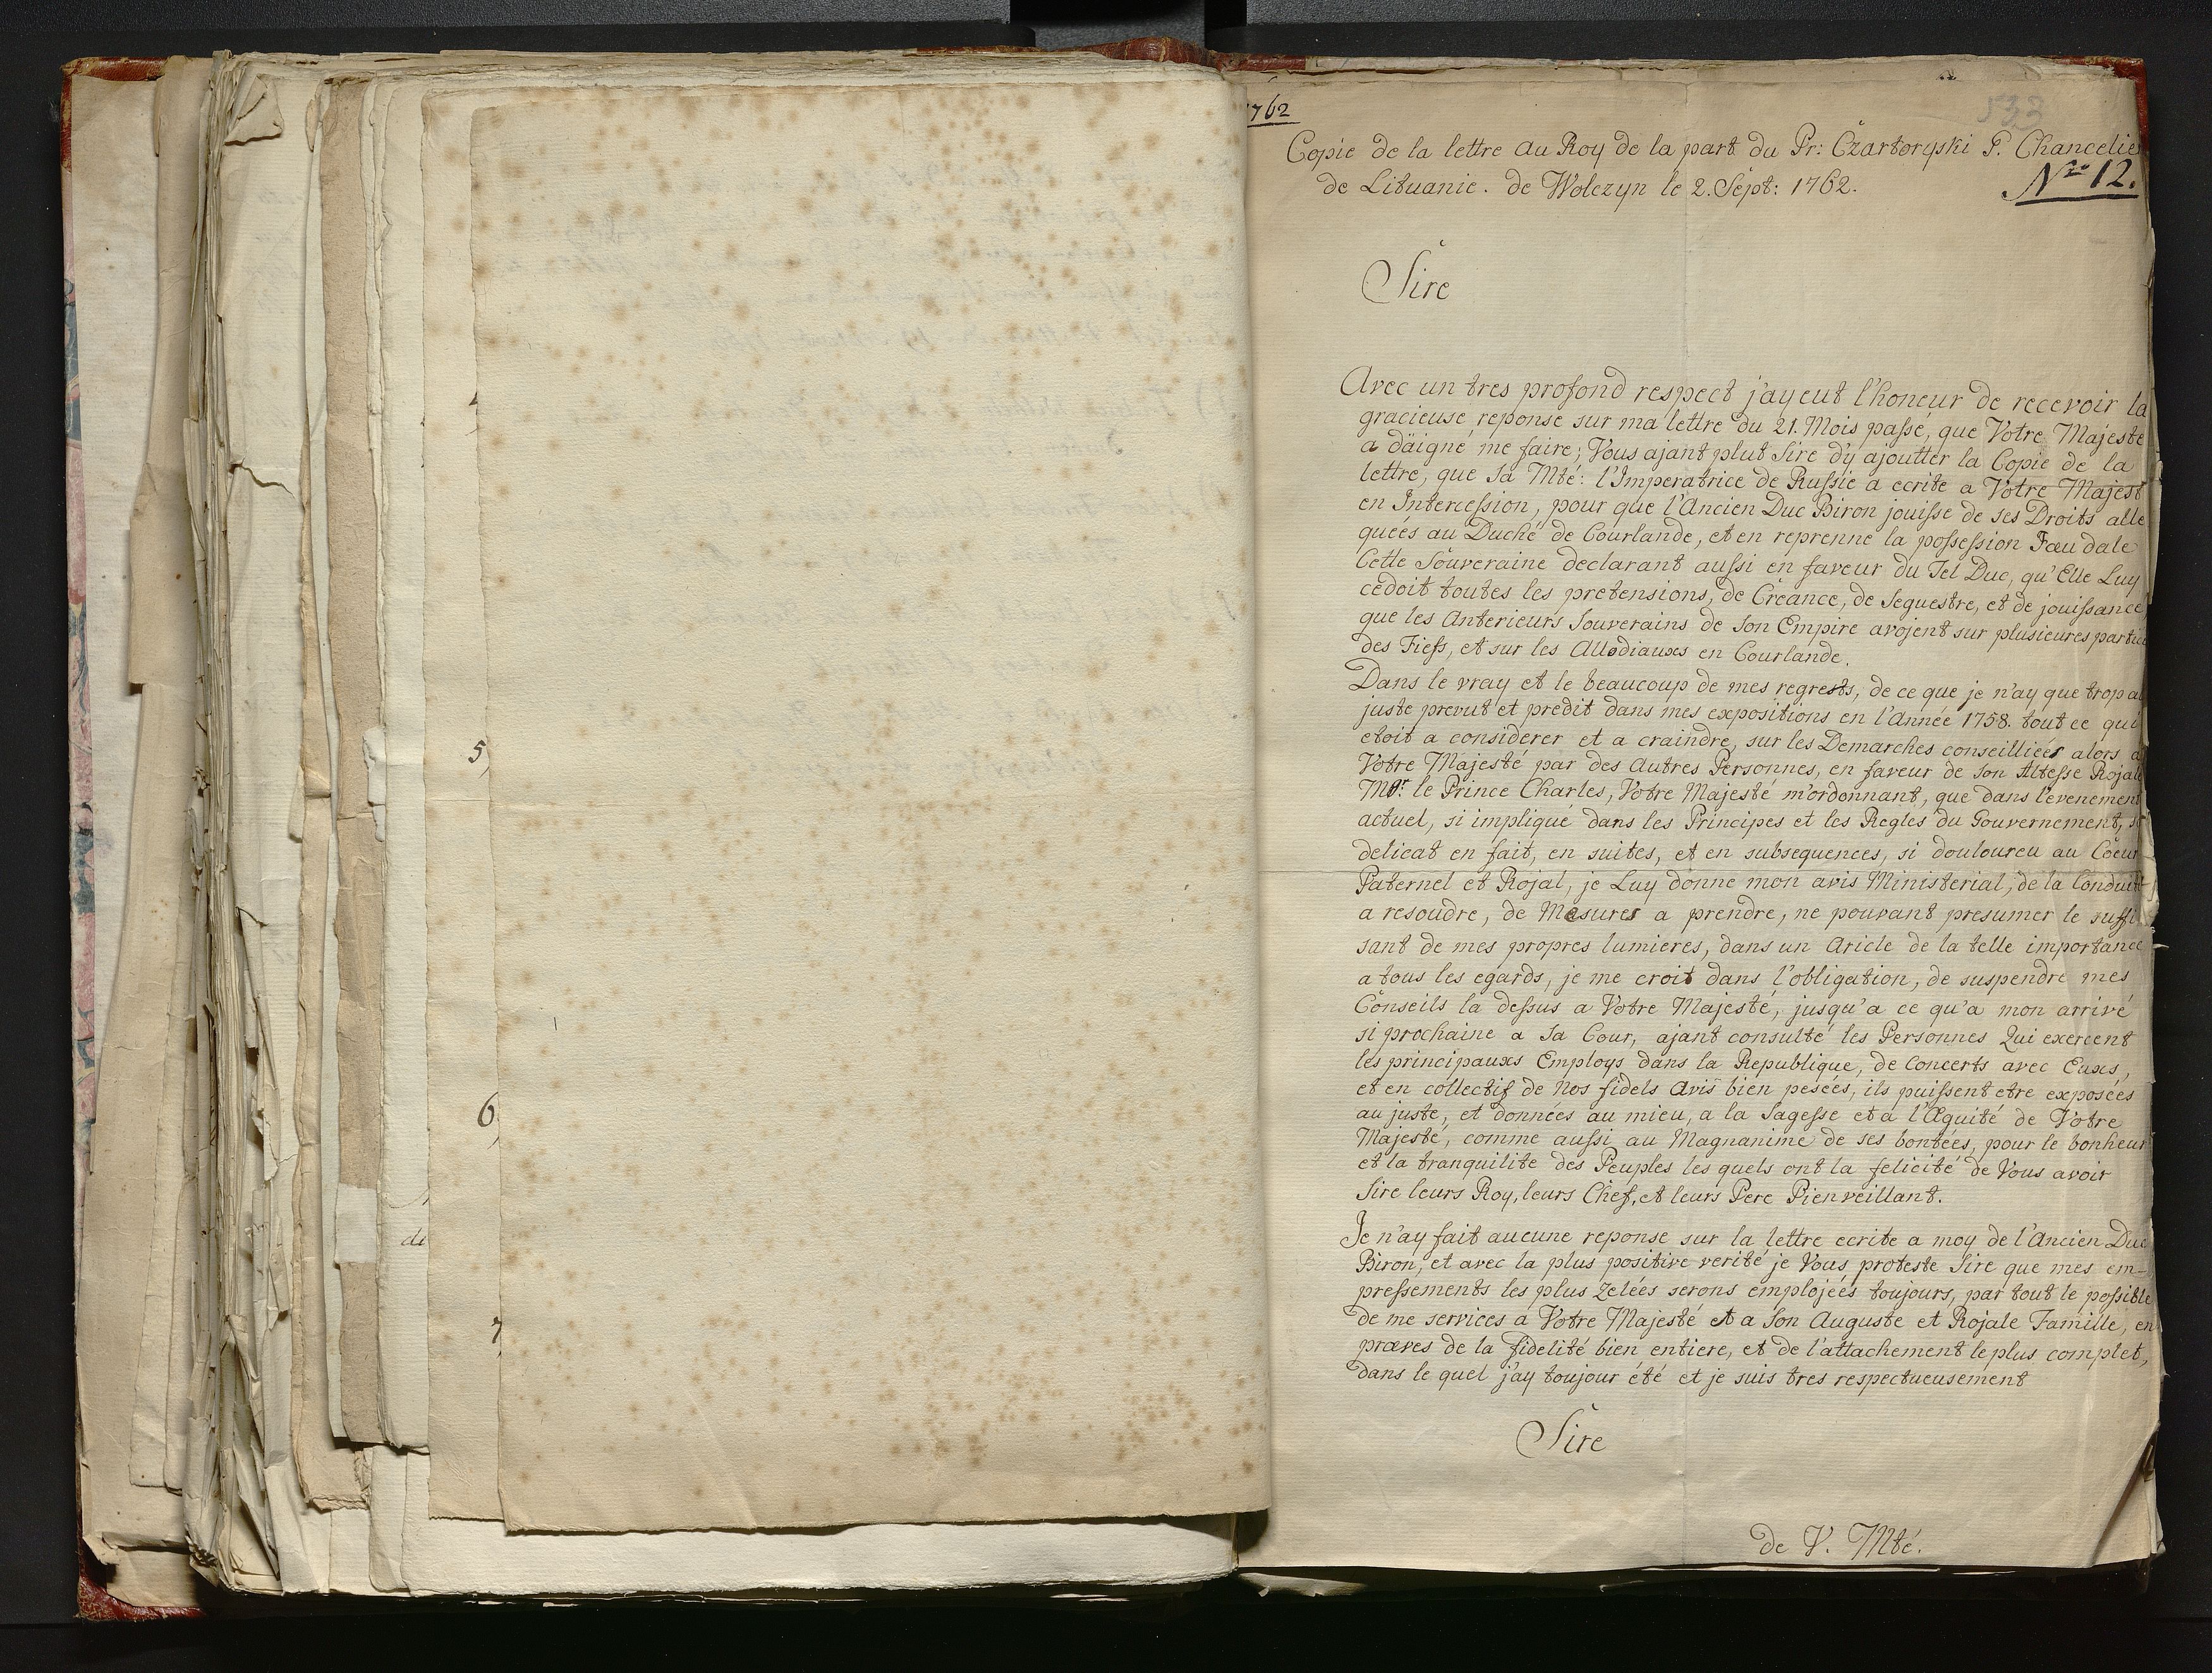 1762
533
Copie de la lettre au Roy de la part du Pr: Czartoryski P. Chancelie
de Lituanie. de Wolczyn le 2. Sept: 1762.
Nro 12.
Sire
Avec un tres profond respect j'ay eut l'honeur de recevoir la
gracieuse reponse sur ma lettre du 21. Mois passé, que Votre Majesté
a däigné me faire; Vous ajant plut Sire d'y ajoutter la Copie de la
lettre, que Sa Mté: l'Imperatrice de Russie a ecrite a Votre Majest
en Intercession, pour que l'Ancien Duc Biron jouisse de ses Droits alle
queés au Duché de Courlande, et en reprenne la possession Fœudale
Cette Souveraine declarant aussi en faveur du Tel Duc, qu'Elle Luy
cedoit toutes les pretensions, de Créance, de Sequestre, et de jouissance
que les Anterieurs Souverains de Son Empire avojent sur plusieures partie
des Fiefs, et sur les Allodiauxs en Courlande.
Dans le vray et le beaucoup de mes regrests, de ce que je n'ay que trop au
juste prevut et predit dans mes expositions en l'Année 1758. tout ce qui
etoit a considerer et a craindre, sur les Demarches conseilliées alors a
Votre Majesté par des Autres Personnes, en faveur de Son Altesse Rojale
Mgr: le Prince Charles, Votre Majesté m'ordonnant, que dans l'evenement
actuel, si impliqué dans les Principes et les Regles du Gouvernement, si
delicat en fait, en suites, et en subsequences, si douloureu au Coeur
Paternel et Rojal, je Luy donne mon avis Ministerial, de la Conduit
a resoudre, de Mesures a prendre, ne pouvant presumer le suffi
sant de mes propres lumieres, dans un Aricle de la telle importance
a tous les egards, je me croit dans l'obligation, de suspendre mes
Conseils la dessus a Votre Majesté, jusqu'a ce qu'a mon arrivé
si prochaine a Sa Cour, ajant consulté les Personnes Qui exercent
les principauxs Employs dans la Republique, de Concerts avec Euxs,
et en collectif de Nos fidels Avis bien peseés, ils puissent etre exposeés
au juste, et donnéés au mieu, a la Sagesse et a l'Æquité de Votre
Majesté, comme aussi au Magnanime de ses bonteés, pour le bonheur
et la tranquilite des Peuples les quels ont la felicité de Vous avoir
Sire leurs Roy, leurs Chef, et leurs Pere Pienveillant.
Je n'ay fait aucune reponse sur la lettre ecrite a moy de l'Ancien Duc
Biron, et avec la plus positive verité je Vous proteste Sire que mes em-
pressements les plus Zeleés serons emplojeés toujours, par tout le possible
de me services a Votre Majesté et a Son Auguste et Rojale Famille, en
præves de la fidelité bien entiere, et de l'attachement le plus complet,
dans le quel j'ay toujour été et je suis tres respectueusement
Sire
de V. Mté.
5,
6,
di
7,